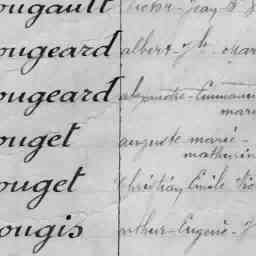 ougault Victor - Jean B
ougeard albert - Jh. mar
ougeard alexandre - Emmanu
mari
ouget auguste marie -
mathurin
ouget Christian Emile Vic
ougis arthur - Eugène - J